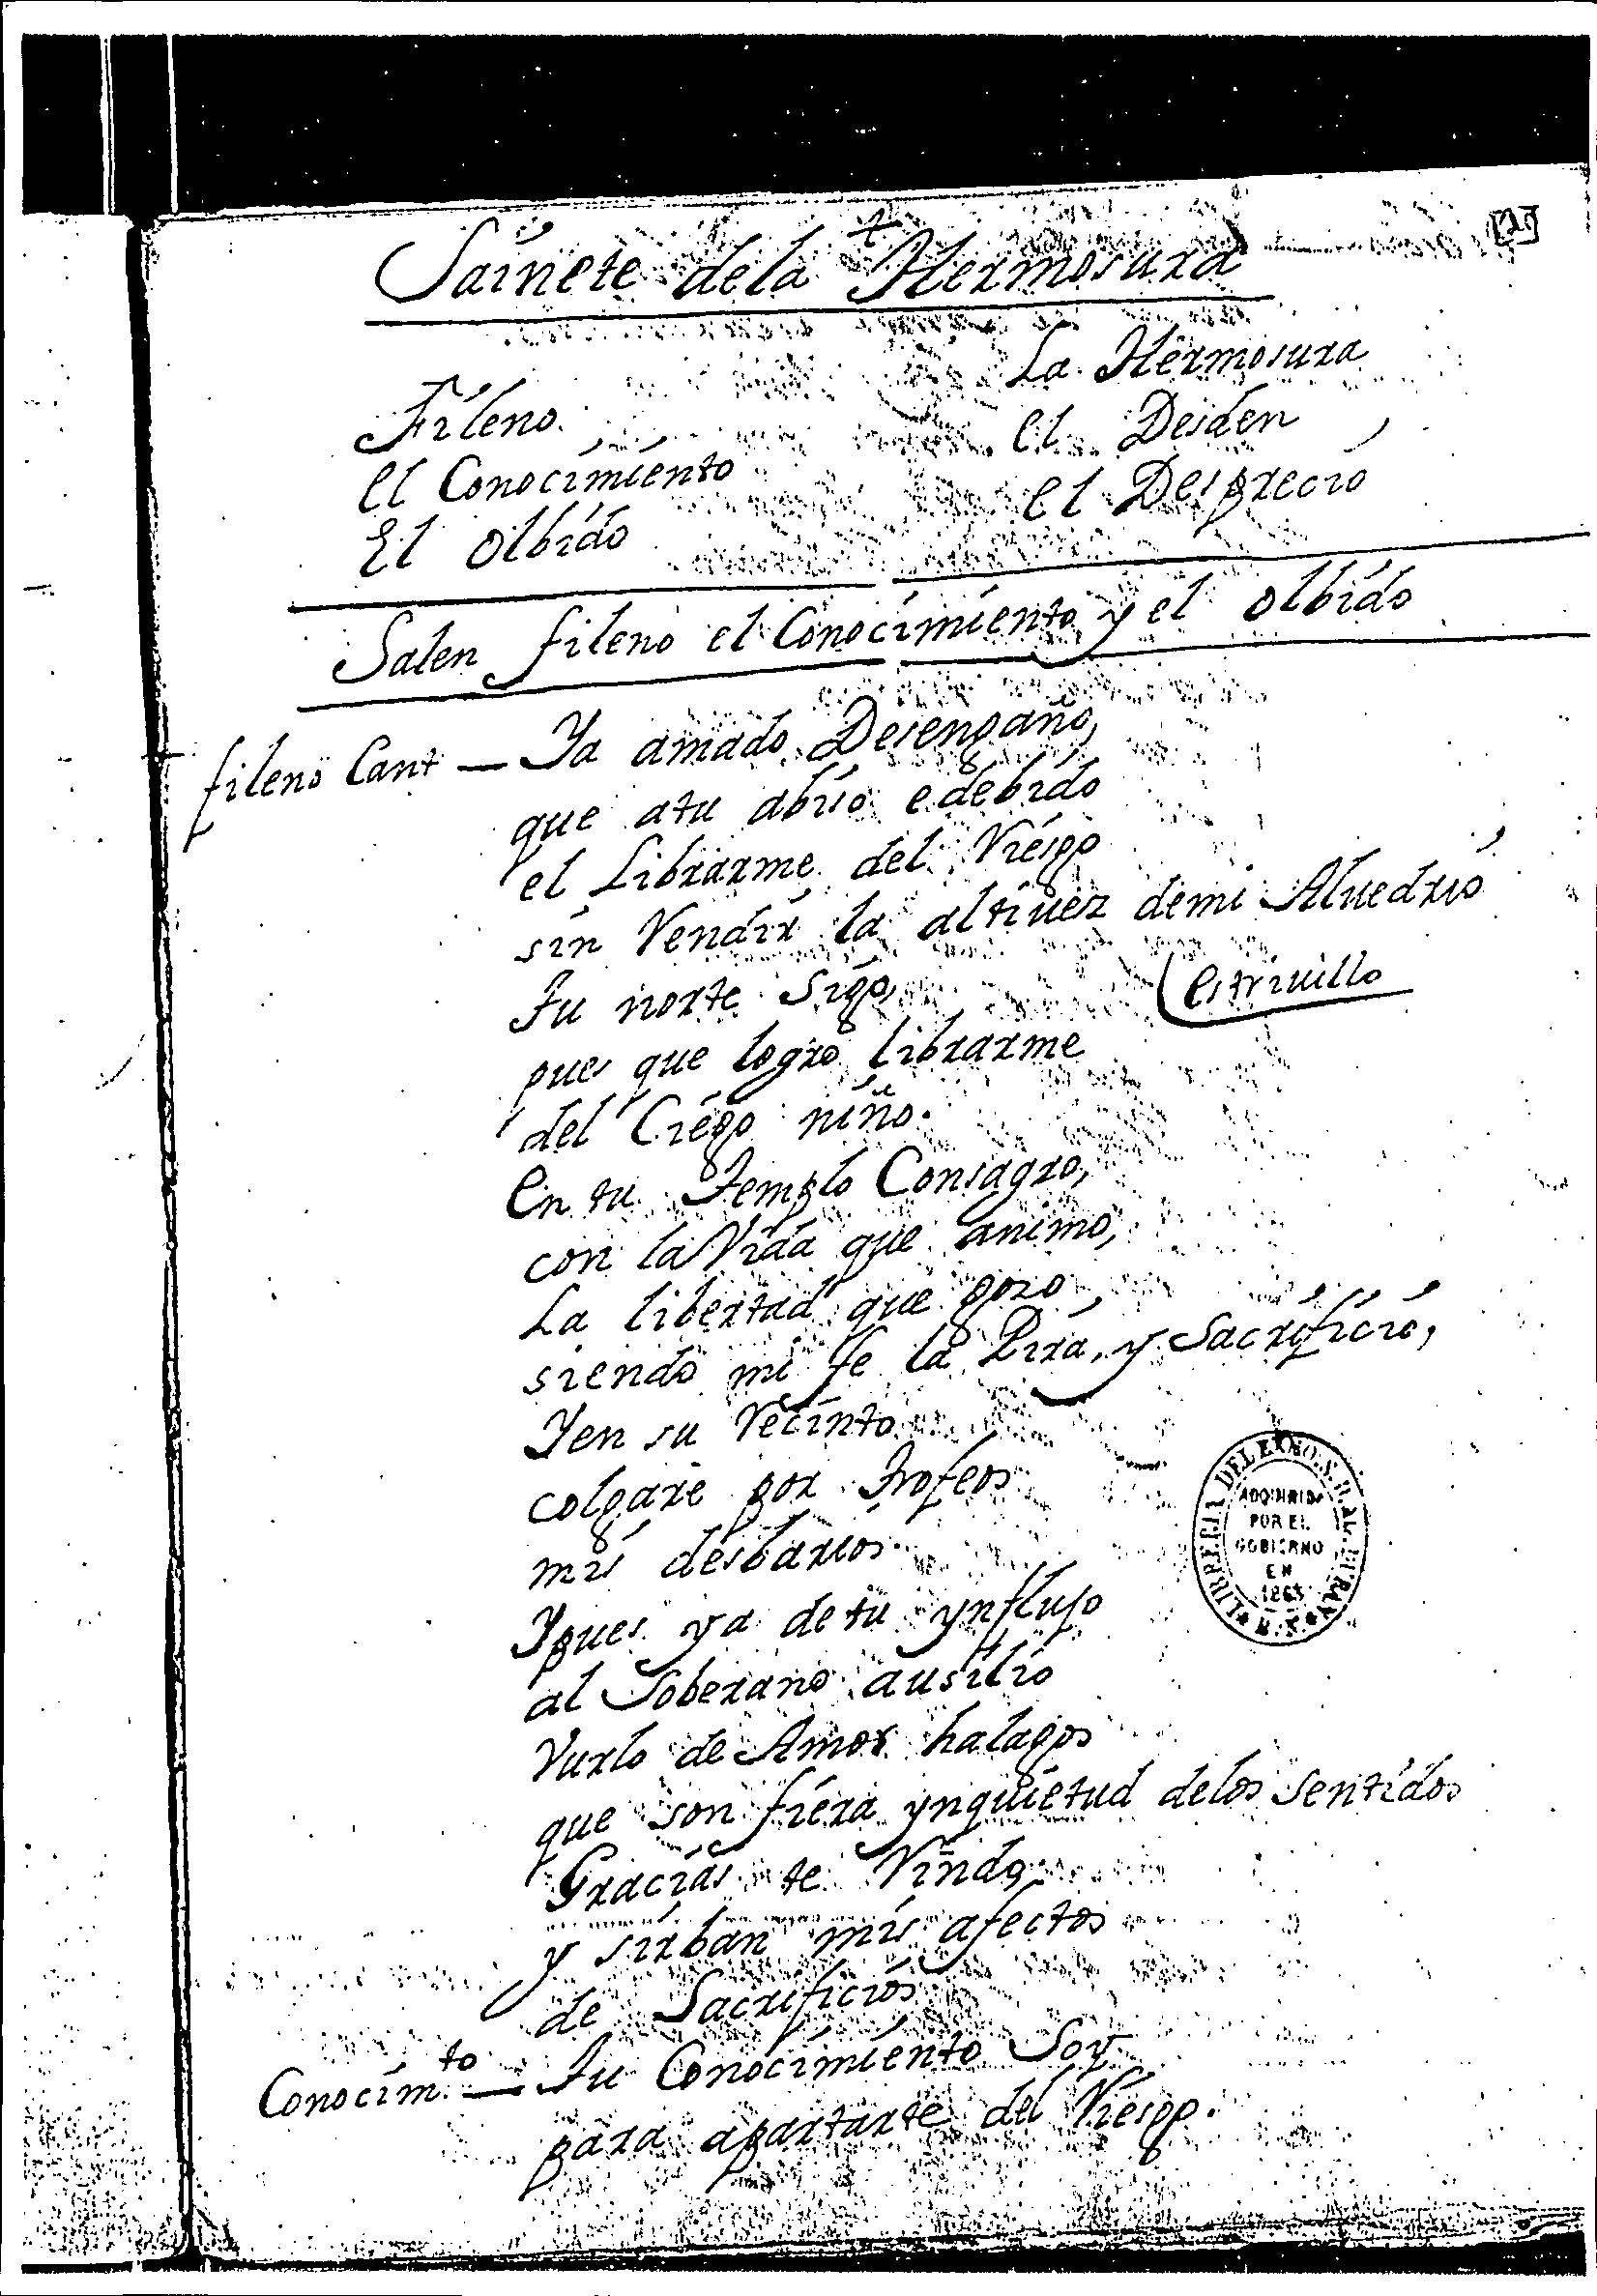 [1]
+
Sainete dela Hermosura
La Hermosura
Fileno
el Desden
el Conocimiento
el Desprecio
El Olbido
Salen fileno el Conocimiento y el Olbido
fileno Cant — Ya amado Desengaño,
que atu abrio e debido
el Librarme del Riesgo
sin Rendir la altiuez demi Aluedrio
tu norte sigo, estriuillo
pues que logro librarme
del Ciego niño.
en tu Templo Consagro,
con la Vida que animo,
La libertad que gozo
siendo mi fe la Pira, y Sacrificio,
Yen su Recinto
colgare por trofeos
mis desbarios.
Ypues ya de tu ynflujo
al Soberano ausilio
Vurlo de Amor halagos
que son fiera ynquietud delos sentidos
Gracias te Rindo,
y sirban mis afectos
de Sacrificios
Conocim.to — Tu Conocimiento Soy
para apartarte del Riesgo.
LIBRERIA DEL EXMO. S. D. A. DURAN
ADQUIRIDA
POR EL
GOBIERNO
EN
1863
B. N.